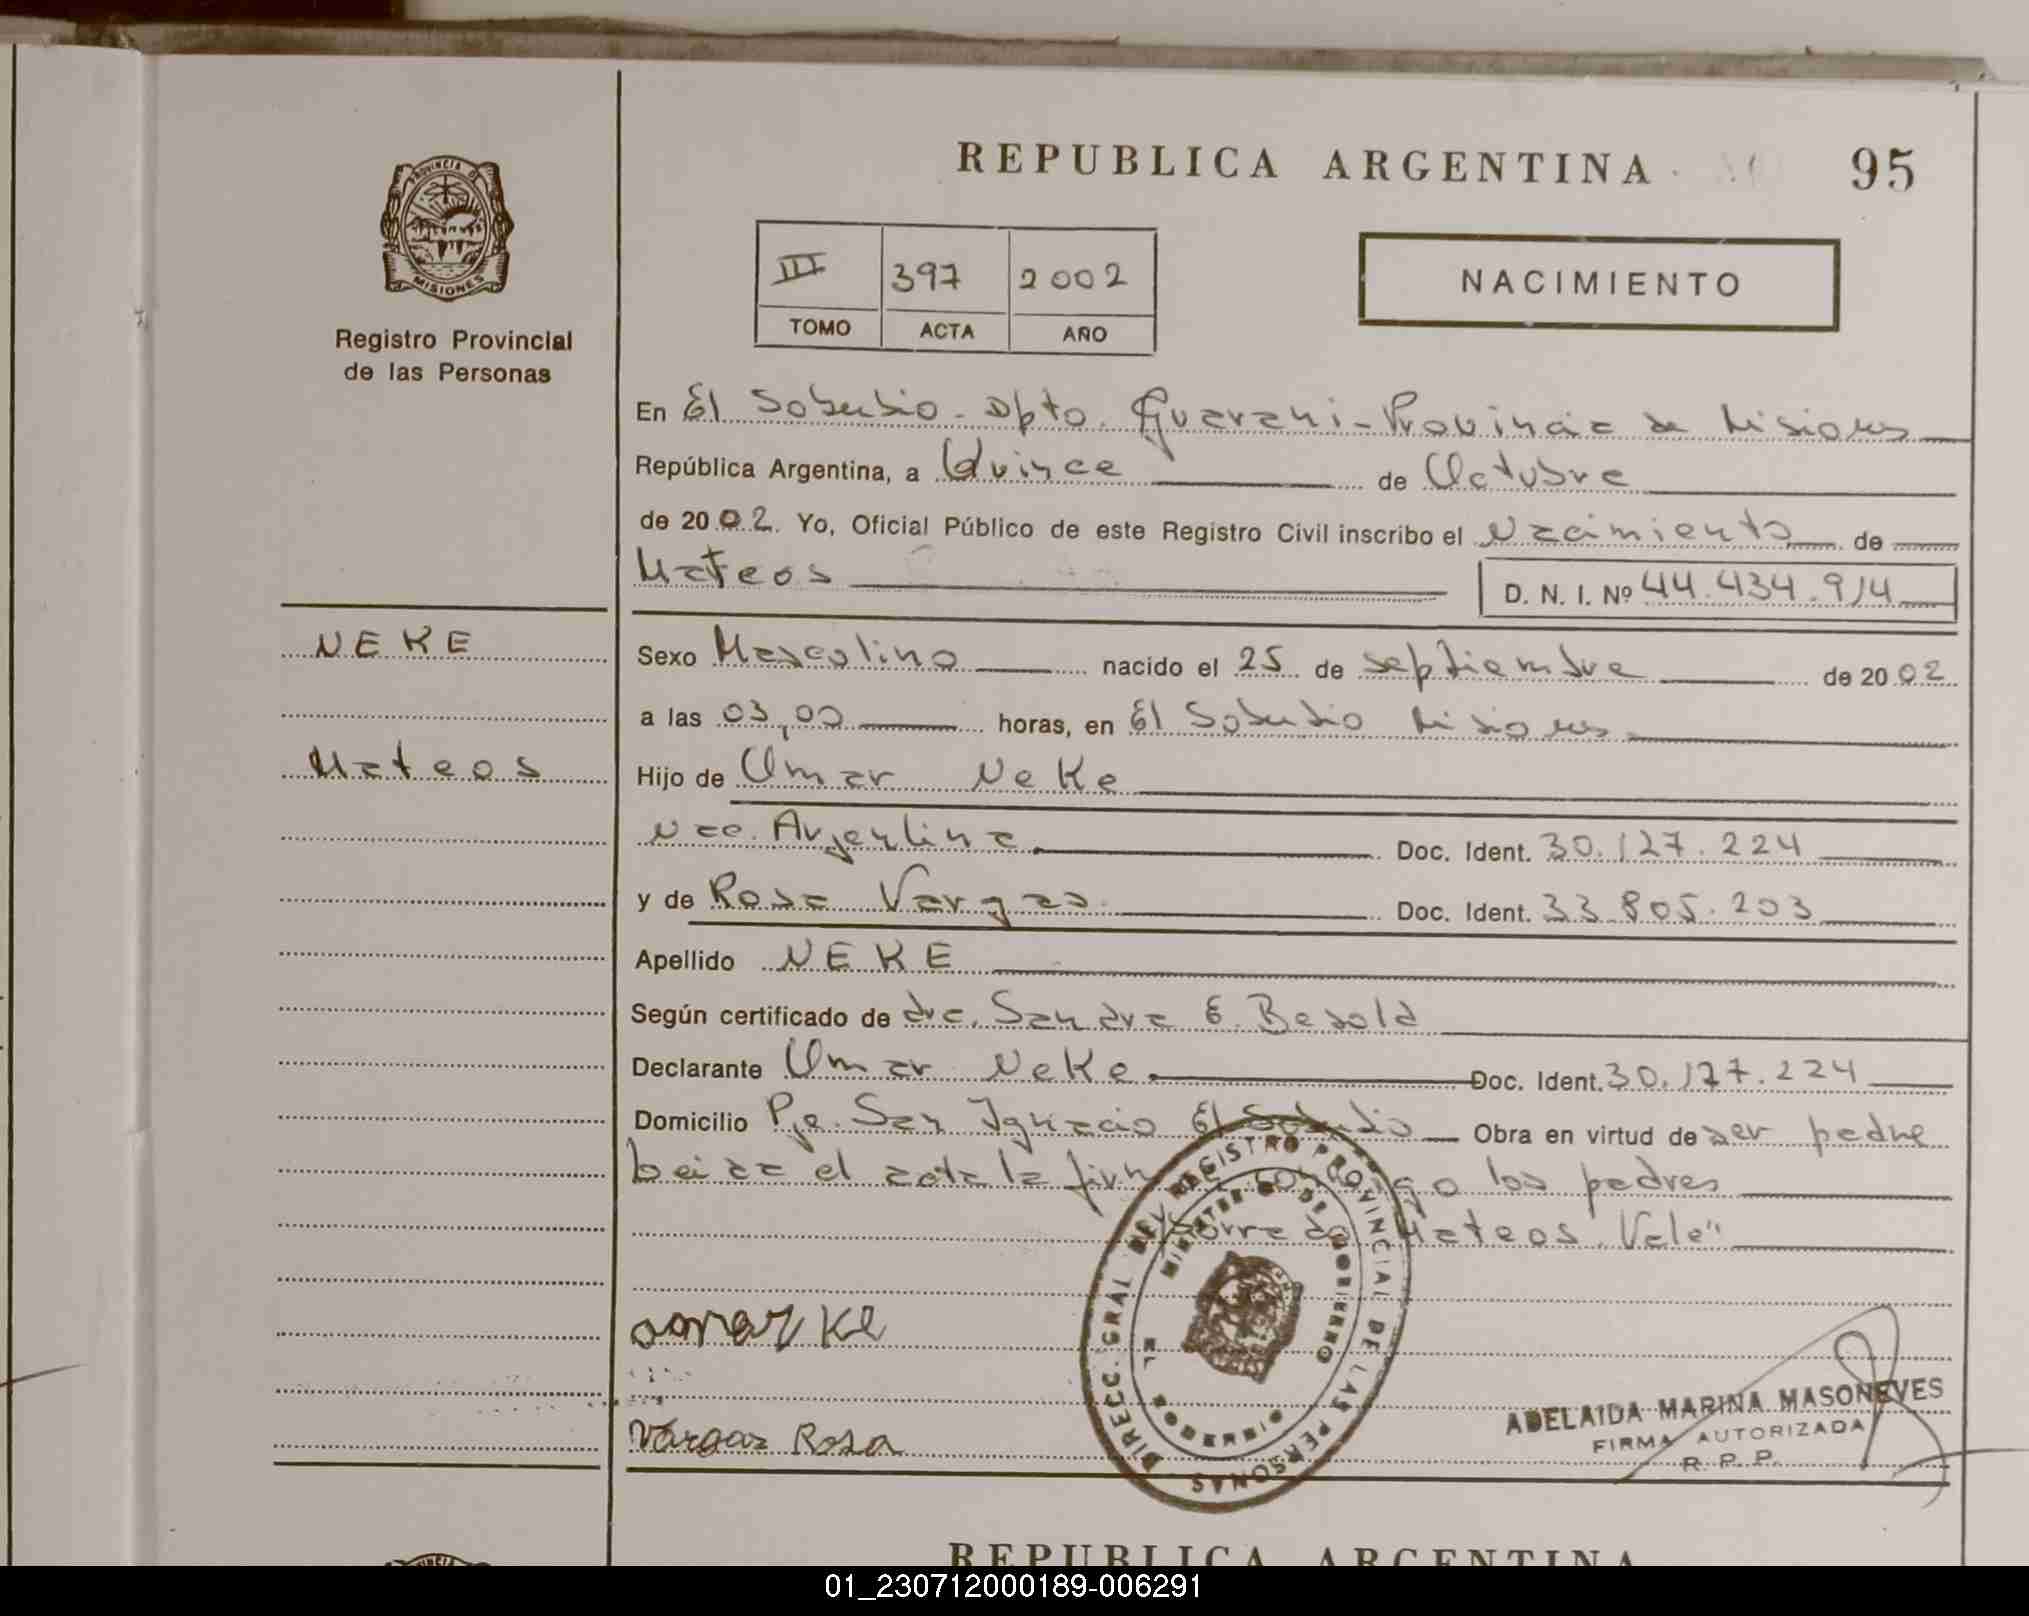 REPUBLICA ARGENTINA
95
PROVINCIA DE
MISIONES
Registro Provincial
de las Personas
III 397 2002
TOMO ACTA AÑO
NACIMIENTO
En El Soberbio - Dpto. Guarani - Provincia de Misiones
República Argentina, a Quince de Octubre
de 2002. Yo, Oficial Público de este Registro Civil inscribo el Nacimiento de
Mateos
D. N. I. Nº 44.434.914
NEKE
Mateos
Sexo Masculino nacido el 25 de septiembre de 2002
a las 03,00 horas, en El Soberbio Misiones
Hijo de Omar Neke
Nac. Argentina Doc. Ident. 30.127.224
y de Rosa Vargas Doc. Ident. 33.805.203
Apellido NEKE
Según certificado de dra. Sandra E. Besold
Declarante Omar Neke Doc. Ident. 30.127.224
Domicilio Pje. San Ignacio El Soberbio Obra en virtud de ser padre
Leida el acta la firman conmigo los padres
Borrado Mateos. Vale"
omar Ke
Vargas Rosa
DIRECC. GRAL DEL REGISTRO PROVINCIAL DE LAS PERSONAS
MINISTERIO DE GOBIERNO
MISIONES
ADELAIDA MARINA MASONEVES
FIRMA AUTORIZADA
R. P. P.
REPUBLICA ARGENTINA
01_230712000189-006291